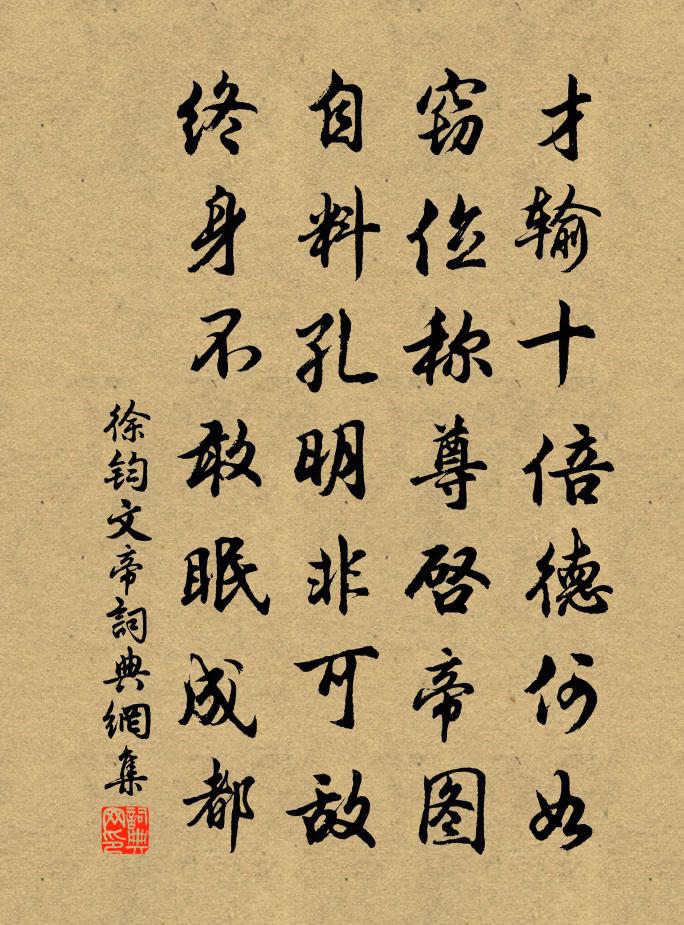 才输十倍德何如
窃位称尊启帝图
自料孔明非可敌
终身不敢眠成都
徐钧文帝詞典網集
詞典网印